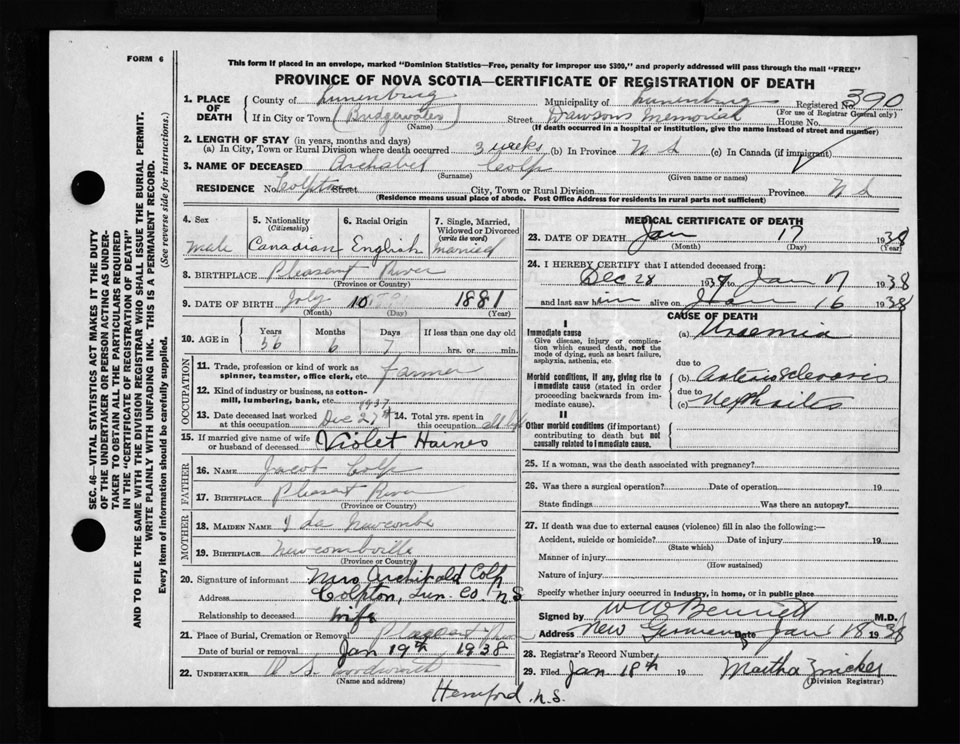 FORM 6
This form if placed in an envelope, marked "Dominion Statistics—Free, penalty for improper use $300," and properly addressed will pass through the mail "FREE"
PROVINCE OF NOVA SCOTIA—CERTIFICATE OF REGISTRATION OF DEATH
SEC. 46—VITAL STATISTICS ACT MAKES IT THE DUTY
OF THE UNDERTAKER OR PERSON ACTING AS UNDER-
TAKER TO OBTAIN ALL THE PARTICULARS REQUIRED
IN THE "CERTIFICATE OF REGISTRATION OF DEATH"
AND TO FILE THE SAME WITH THE DIVISION REGISTRAR WHO SHALL ISSUE THE BURIAL PERMIT.
WRITE PLAINLY WITH UNFADING INK. THIS IS A PERMANENT RECORD.
Every item of information should be carefully supplied. (See reverse side for instructions.)
1. PLACE OF DEATH County of Lunenburg Municipality of Lunenburg Registered No. 390
(For use of Registrar General only)
If in City or Town (Bridgewater) Street Dawsons Memorial House No.
(Name) (If death occurred in a hospital or institution, give the name instead of street and number)
2. LENGTH OF STAY (in years, months and days)
(a) In City, Town or Rural Division where death occurred 3 weeks (b) In Province N S (c) In Canada (if immigrant)
3. NAME OF DECEASED Colp
(Surname) (Given name or names)
RESIDENCE No. Colpton Street City, Town or Rural Division Province N S
(Residence means usual place of abode. Post Office Address for residents in rural parts not sufficient)
4. Sex Male
5. Nationality (Citizenship) Canadian
6. Racial Origin English
7. Single, Married, Widowed or Divorced (write the word) Married
8. BIRTHPLACE Pleasant River
(Province or Country)
9. DATE OF BIRTH July 10 1881
(Month) (Day) (Year)
10. AGE in Years 56 Months 6 Days 7 If less than one day old hrs. or min.
OCCUPATION
11. Trade, profession or kind of work as spinner, teamster, office clerk, etc. Farmer
12. Kind of industry or business, as cotton-mill, lumbering, bank, etc.
13. Date deceased last worked at this occupation Dec 27th 1937
14. Total yrs. spent in this occupation all life
15. If married give name of wife or husband of deceased Violet Haines
FATHER
16. NAME Jacob Colp
17. BIRTHPLACE Pleasant River
(Province or Country)
MOTHER
18. MAIDEN NAME Ida Newcombe
19. BIRTHPLACE Newcombville
(Province or Country)
20. Signature of informant Mrs Archibald Colp
Address Colpton, Lun. Co. N S
Relationship to deceased wife
21. Place of Burial, Cremation or Removal Pleasant River
Date of burial or removal Jan 19th, 1938
22. UNDERTAKER
(Name and address)
Hemford N.S.
MEDICAL CERTIFICATE OF DEATH
23. DATE OF DEATH Jan 17 1938
(Month) (Day) (Year)
24. I HEREBY CERTIFY that I attended deceased from:
Dec 28 1937 to Jan 17 1938
and last saw him alive on Jan 16 1938
CAUSE OF DEATH
I
Immediate cause (a) Uraemia
Give disease, injury or complication which caused death, not the mode of dying, such as heart failure, asphyxia, asthenia, etc.
due to
Morbid conditions, if any, giving rise to immediate cause (stated in order proceeding backwards from immediate cause). (b) Arteriosclerosis
due to
(c) Nephritis
II
Other morbid conditions (if important) contributing to death but not causally related to immediate cause.
25. If a woman, was the death associated with pregnancy?
26. Was there a surgical operation? Date of operation 19
State findings Was there an autopsy?
27. If death was due to external causes (violence) fill in also the following:—
Accident, suicide or homicide? Date of injury 19
(State which)
Manner of injury
(How sustained)
Nature of injury
Specify whether injury occurred in Industry, in home, or in public place
Signed by W W Bennett M.D.
Address New Germany Date Jan 18 1938
28. Registrar's Record Number
29. Filed Jan 18th 19 Martha Zwicker
(Division Registrar)